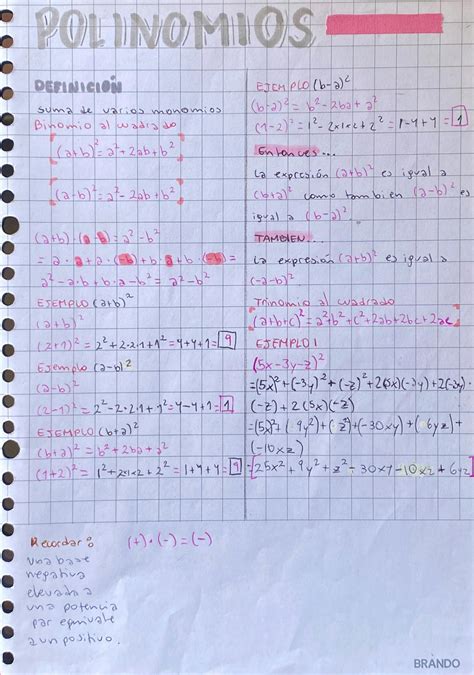 POLINOMIOS
DEFINICIÓN
suma de varios monomios
Binomio al cuadrado
(a+b)² = a² + 2ab + b²
(a-b)² = a² - 2ab + b²
(a+b)·(a-b) = a² - b²
= a·a + a·(-b) + b·a + b·(-b) =
a² - a·b + b·a - b² = a² - b²
EJEMPLO (a+b)²
(a+b)²
(2+1)² = 2² + 2·2·1 + 1² = 4+4+1 = 9
Ejemplo (a-b)²
(a-b)²
(2-1)² = 2² - 2·2·1 + 1² = 4-4+1 = 1
EJEMPLO (b+a)²
(b+a)² = b² + 2ba + a²
(1+2)² = 1² + 2x1x2 + 2² = 1+4+4 = 9
EJEMPLO (b-a)²
(b-a)² = b² - 2ba + a²
(1-2)² = 1² - 2x1x2 + 2² = 1-4+4 = 1
Entonces...
La expresión (a+b)² es igual a
(b+a)² como tambien (a-b)² es
igual a (b-a)².
TAMBIEN...
La expresión (a+b)² es igual a
(-a-b)².
Trinomio al cuadrado
(a+b+c)² = a² + b² + c² + 2ab + 2bc + 2ac
EJEMPLO 1
(5x-3y-z)²
= (5x)² + (-3y)² + (-z)² + 2(5x)(-3y) + 2(-3y)
(-z) + 2(5x)(-z)
= (5x)² + (9y²) + (z²) + (-30xy) + (6yz) +
(-10xz)
= 25x² + 9y² + z² - 30xy - 10xz + 6yz
Recordar:
(+)·(-) = (-)
Una base
negativa
elevada a
una potencia
par equivale
a un positivo.
BRANDO